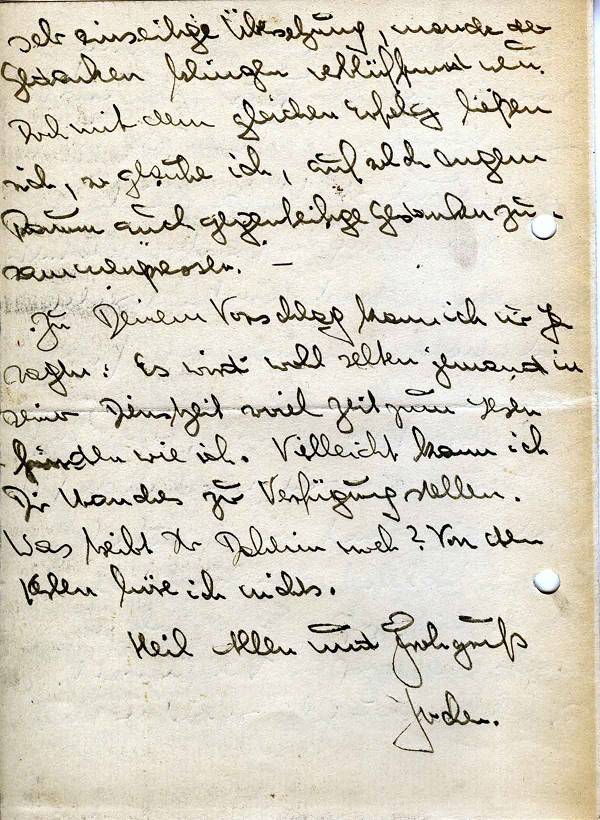 sehr einseitige Übersetzung, manche der
Gedanken klingen verblüffend neu.
Doch mit dem gleichen Erfolg ließen
sich, so glaube ich, auf solch engem
Raum auch gegenteilige Gedanken zu-
sammenpressen. –
Zu Deinem Vorschlag kann ich nur ja
sagen: Es wird wohl selten jemand in
seiner Dienstzeit soviel Zeit zum Lesen
finden wie ich. Vielleicht kann ich
Dir Manches zur Verfügung stellen.
Was treibt Ihr Daheim noch? Von den
hör ich nichts.
Heil Allen und Frohgruß
Jochen.